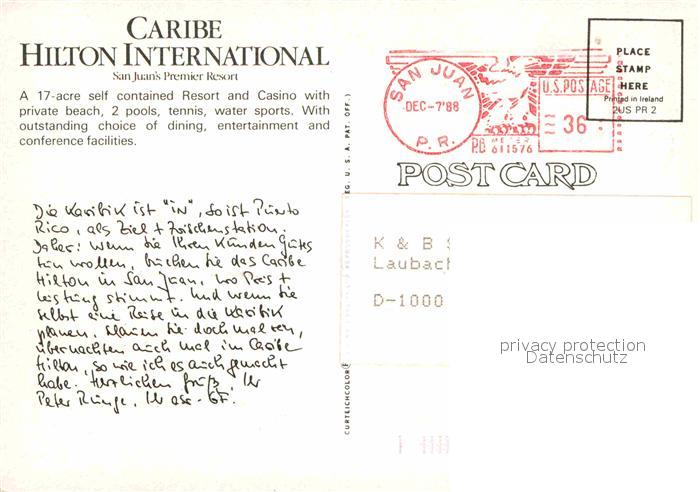 CARIBE
HILTON INTERNATIONAL
San Juan's Premier Resort
A 17-acre self contained Resort and Casino with
private beach, 2 pools, tennis, water sports. With
outstanding choice of dining, entertainment and
conference facilities.
Die Karibik ist "IN", so ist Püerto
Rico, als Ziel + Zwischenstation.
Daher: Wenn Sie Ihren Kunden Gutes
tun wollen, buchen Sie das Caribe
Hilton in San Juan, wo Preis +
Leistung stimmt. Und wenn Sie
selbst eine Reise in die Karibik
planen, schauen Sie doch mal rein,
übernachten auch mal im Caribe
Hilton, so wie ich es auch gemacht
habe. Herzlichen Grüß, Ihr
Peter Runge, Ihr
CURTEICHCOLOR®
REG. U. S. A. PAT. OFF.)
SAN JUAN
DEC-7'88
P.R.
U.S. POSTAGE
36
PB METER
611576
PLACE
STAMP
HERE
Printed in Ireland
2US PR 2
POST CARD
K & B
Laubach
D-1000
privacy protection
Datenschutz